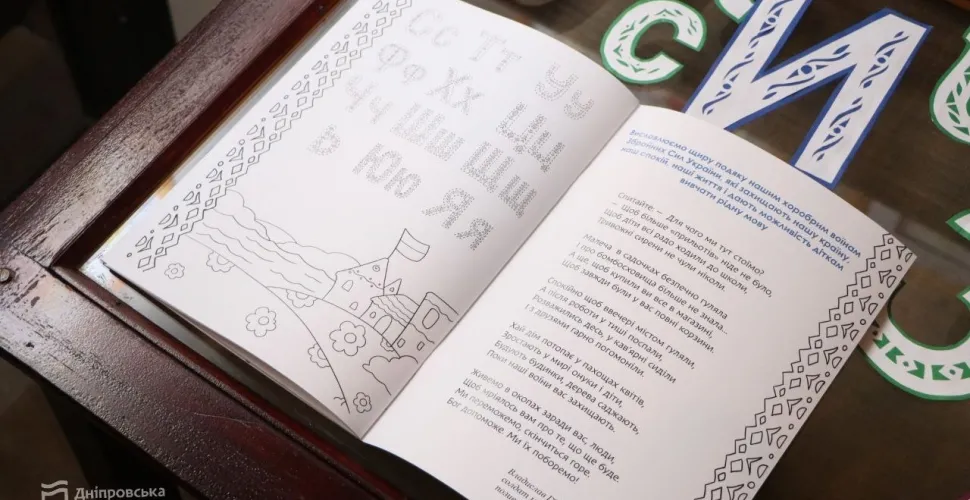 Сс Тт Уу
Фф Хх Цц
Чч Шш Щщ
ь Юю Яя
Висловлюємо щиру подяку нашим хоробрим воїнам
Збройних Сил України, які захищають нашу країну,
наш спокій, наші життя і дають можливість діткам
вивчати рідну мову
Спитайте: – Для чого ми тут стоїмо?
– Щоб більше «прильотів» ніде не було,
Щоб діти всі радо ходили до школи,
Тривожні сирени не чули ніколи.
Малеча в садочках безпечно гуляла
І про бомбосховища більше не знала...
А ще, щоб купили ви все в магазині,
Щоб завжди були у вас повні корзини.
Спокійно щоб ввечері містом гуляли,
А після роботи у тиші поспали,
Розважились десь, у кав'ярні сиділи
І з друзями гарно погомоніли.
Хай дім потопає у пахощах квітів,
Зростають у мирі онуки і діти,
Будують будинки, дерева саджають,
Поки наші воїни вас захищають.
Живемо в окопах заради вас, люди,
Щоб мріялось вам про те, що ще буде.
Ми переможемо, скінчиться горе.
Бог допоможе. Ми їх поборемо!
Владислав
солдат
С И
З
Дніпровська